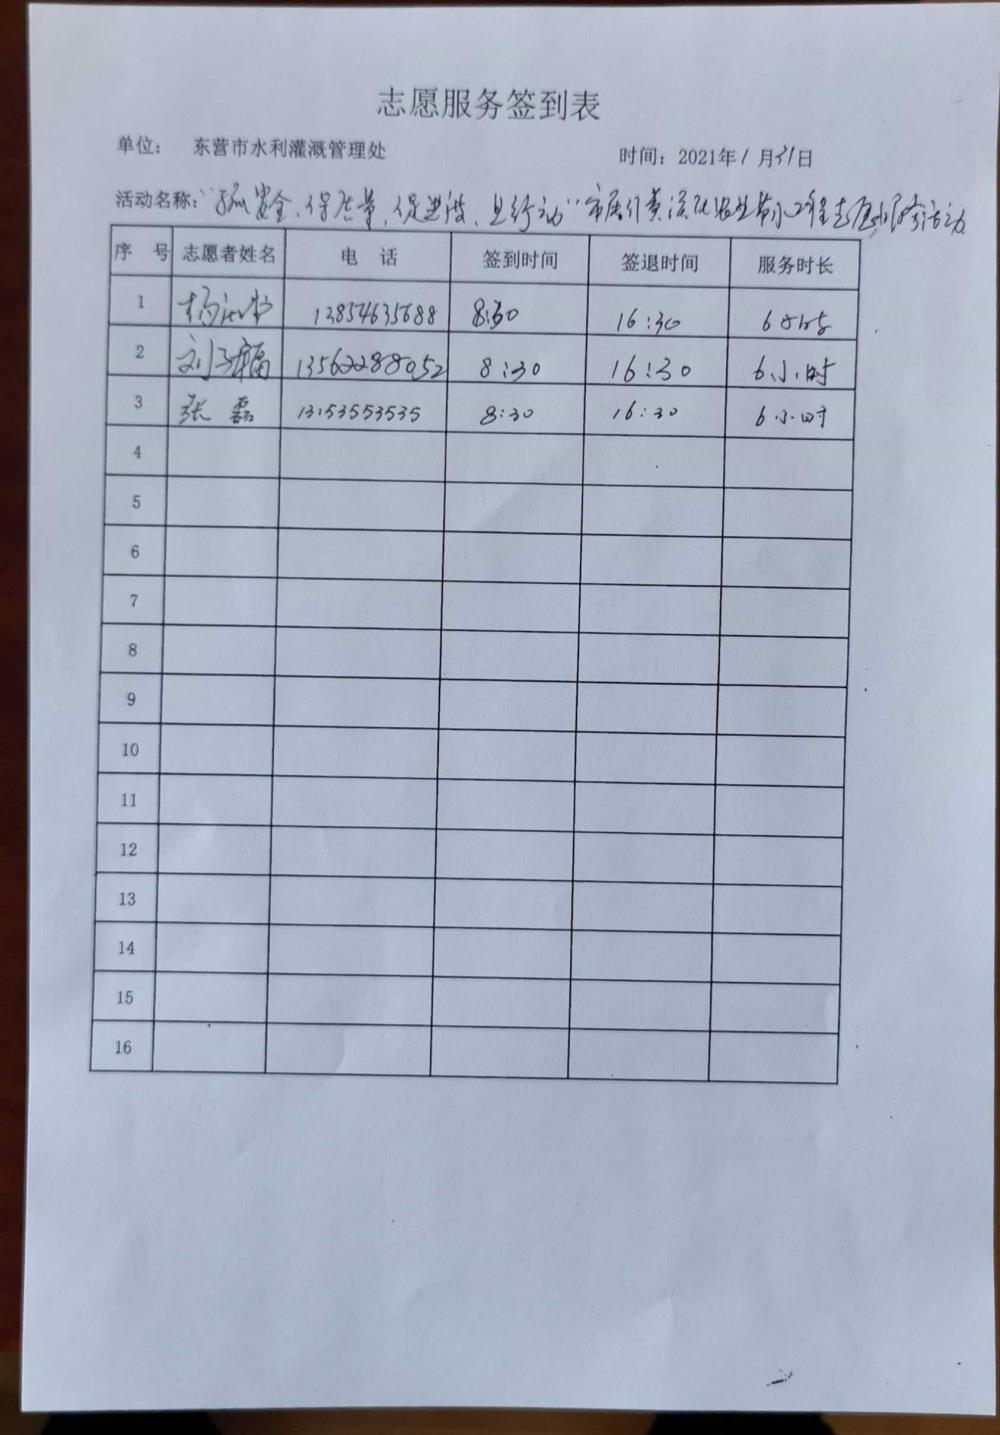 志愿服务签到表
单位： 东营市水利灌溉管理处 时间：2021年1月31日
活动名称：“抓安全、保质量、促进度、见行动”市属引黄灌区农业节水工程志愿服务活动
序 号 志愿者姓名 电 话 签到时间 签退时间 服务时长
1 杨 13854635688 8:30 16:30 6小时
2 刘 13562288052 8:30 16:30 6小时
3 张磊 13153553535 8:30 16:30 6小时
4
5
6
7
8
9
10
11
12
13
14
15
16